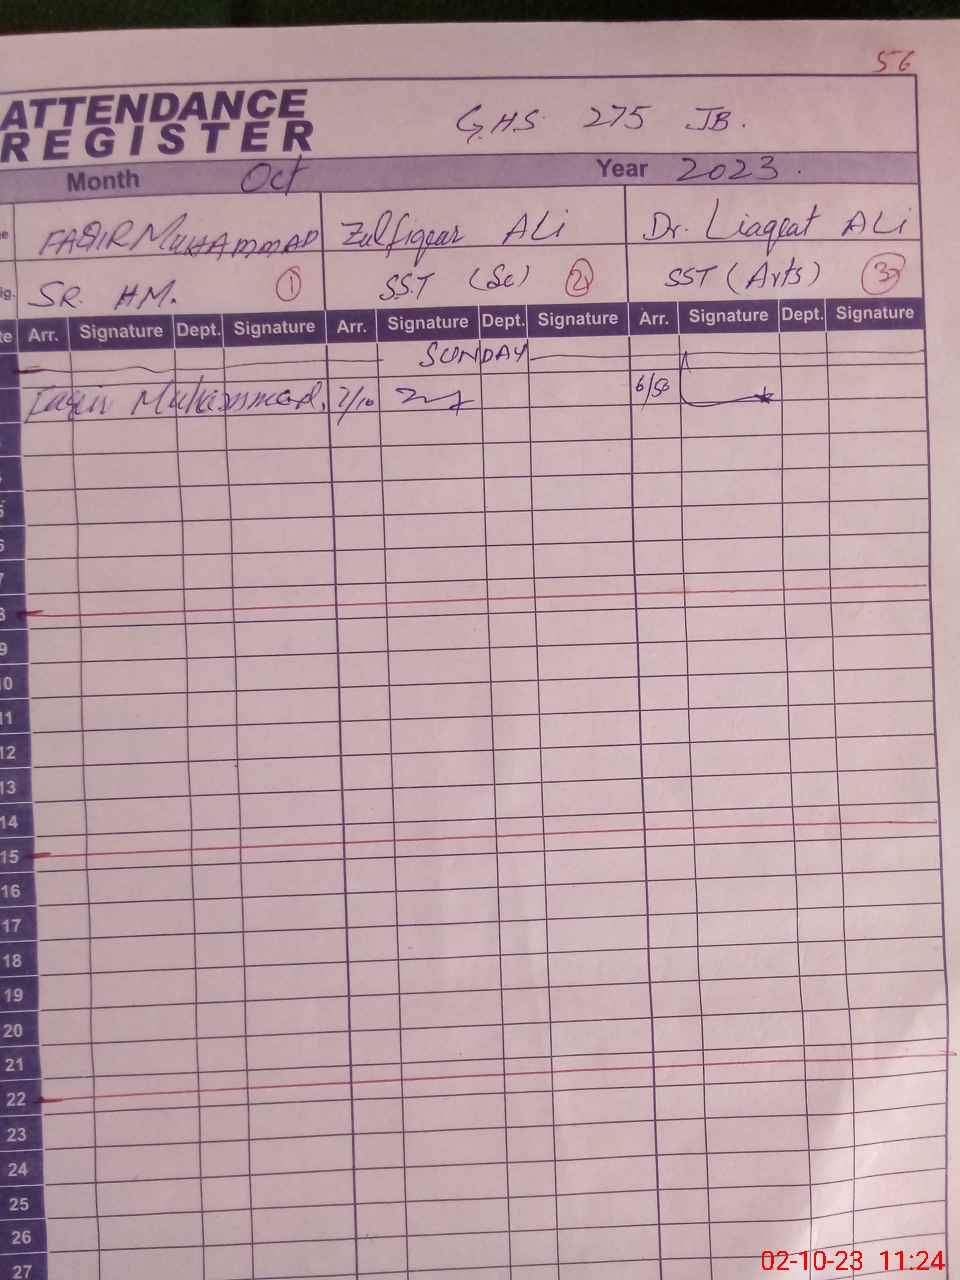 56
ATTENDANCE
REGISTER
GHS 275 JB.
Month Oct Year 2023.
FAQIR MUHAMMAD Zulfiqar ALi Dr. Liaqat ALi
SR. HM. 1 SST (Sc) 2 SST (Arts) 3
Arr. Signature Dept. Signature Arr. Signature Dept. Signature Arr. Signature Dept. Signature
SUNDAY
Faqir Muhammad. 7/10 6/50
5
6
7
8
9
10
11
12
13
14
15
16
17
18
19
20
21
22
23
24
25
26
27
02-10-23 11:24